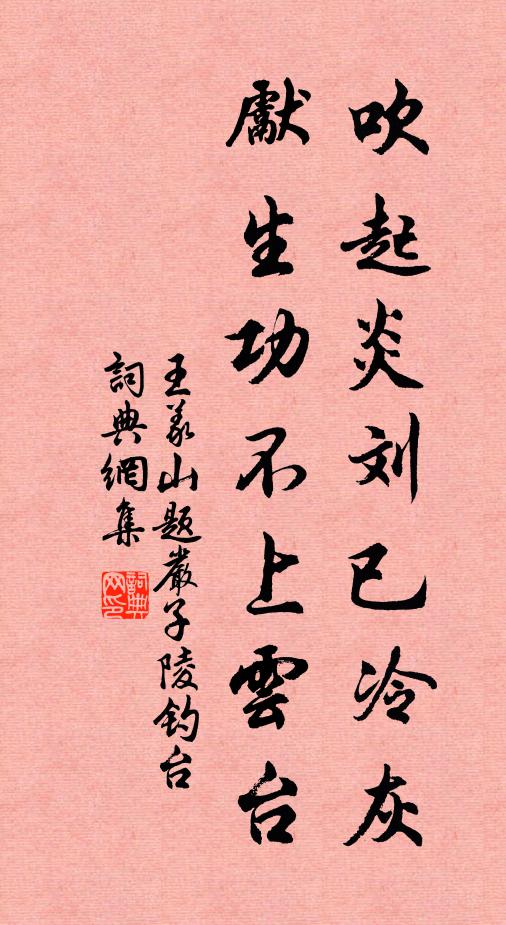 吹起炎刘已冷灰
獻生功不上雲台
王义山题嚴子陵钓台
詞典網集
詞典网印